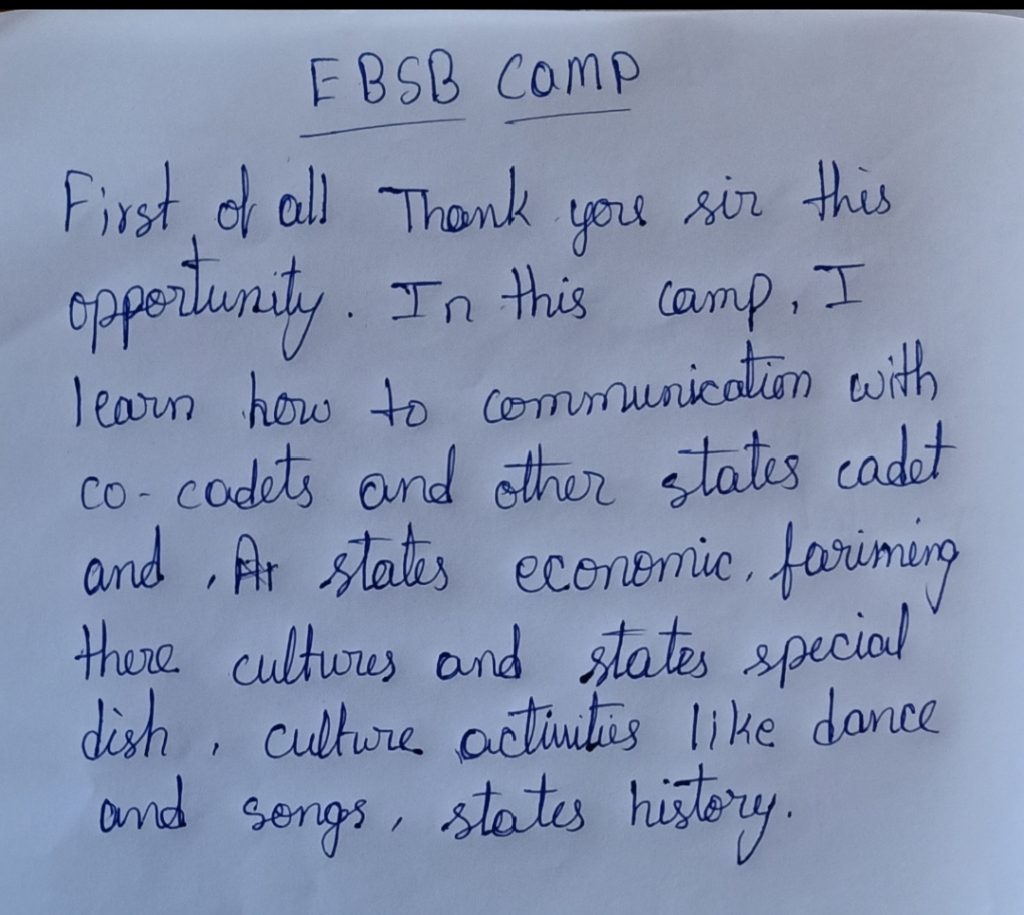 EBSB Camp
First of all Thank you sir this
opportunity. In this camp, I
learn how to communication with
co-cadets and other states cadet
and, states economic, fariming
there cultures and states special
dish, culture activities like dance
and songs, states history.